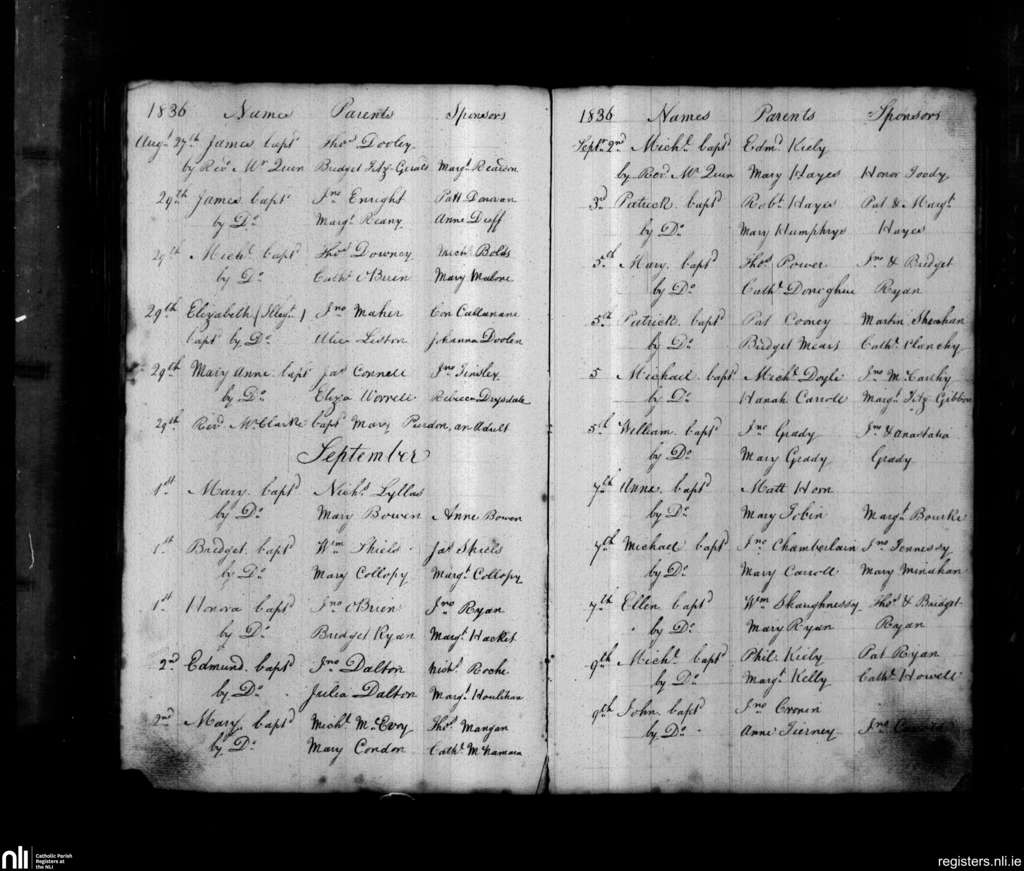 1836 Names Parents Sponsors
Augt 27th James bapt Thos Dooley
by Revd Mr Quin Bridget Fitz Gerald Margt Reardon
29th James bapt Jno Enright Patt Donovan
by Do Margt Reany Anne Duff
29th Michl bapt Thos Downey Michl Bolds
by Do Cathe OBrien Mary Malone
29th Elizabeth ( ) Jno Maher Con Callanane
bapt by Do Alice Liston Johanna Doolen
29th Mary Anne bapt Jas Connell Jno Tinsley
by Do Eliza Worrell Rebecca Drysdale
29th Revd Mr Clarke bapt Mary Purdon, an Adult
September
1st Mary baptd Nichs Lyllas
by Do Mary Bowen Anne Bowen
1st Bridget baptd Wm Shiels Jas Shiels
by Do Mary Collopy Margt Collopy
1st Honora baptd Jno OBrien Jno Ryan
by Do Bridget Ryan Margt Hacket
2nd Edmund baptd Jno Dalton Nichs Roche
by Do Julia Dalton Margt Houlihan
2nd Mary baptd Michl McEvoy Thos Mangan
by Do Mary Condon Cathe McNamara
1836 Names Parents Sponsors
Septr 2nd Michl baptd Edmd Kiely
by Revd Mr Quin Mary Hayes Honor Toody
3d Patrick baptd Robt Hayes Pat & Margt
by Do Mary Humphrys Hayes
5th Mary baptd Thos Power Jno & Bridget
by Do Cathe Donoghue Ryan
5th Patrick baptd Pat Cooney Martin Sheahan
by Do Bridget Mears Cathe Clanchy
5 Michael baptd Michl Doyle Jno McCarthy
by Do Hanah Carroll Margt Fitz Gibbon
5th William baptd Jno Grady Jno & Anastatia
by Do Mary Grady Grady
7th Anne baptd Matt Horn
by Do Mary Tobin Margt Bourke
7th Michael baptd Jno Chamberlain Jno Fennessy
by Do Mary Carroll Mary Minahan
7th Ellen baptd Wm Shaughnessy Thos & Bridget
by Do Mary Ryan Ryan
9th Michl baptd Phil Kiely Pat Ryan
by Do Margt Kelly Cathe Howell
9th John baptd Jno Cronin
by Do Anne Tierney Jno
nli Catholic Parish
Registers at
the NLI
registers.nli.ie